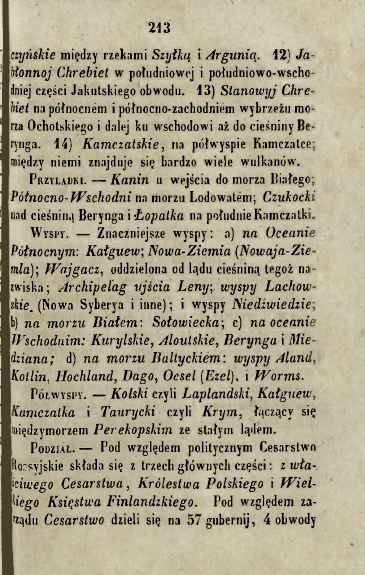 213
czyńskie między rzekami Szyłką i Argunią. 12) Ja-
błonnoj Chrebiet w południowej i południowo-wscho-
dniej części Jakutskiego obwodu. 13) Stanowyj Chre-
biet na północnem i północno-zachodniem wybrzeżu mo-
rza Ochotskiego i dalej ku wschodowi aż do cieśniny Be-
rynga. 14) Kamczatskie, na półwyspie Kamczatce;
między niemi znajduje się bardzo wiele wulkanów.
PRZYLĄDKI. — Kanin u wejścia do morza Białego;
Północno-Wschodni na morzu Lodowatém; Czukocki
nad cieśniną Berynga i Łopatka na południe Kamczatki.
WYSPY. — Znaczniejsze wyspy: a) na Oceanie
Północnym: Kałguew; Nowa-Ziemia (Nowaja-Zie-
mla); Wajgacz, oddzielona od lądu cieśniną tegoż na-
zwiska; Archipelag ujścia Leny; wyspy Lachow-
skie. (Nowa Syberya i inne); i wyspy Niedźwiedzie;
b) na morzu Białem: Sołowiecka; c) na oceanie
Wschodnim: Kurylskie, Aloutskie, Berynga i Mie-
dziana; d) na morzu Baltyckiém: wyspy Aland,
Kotlin, Hochland, Dago, Oesel (Ezel), i Worms.
PÓŁWYSPY. — Kolski czyli Laplandski, Kałguew,
Kamczatka i Taurycki czyli Krym, łączący się
międzymorzem Perekopskim ze stałym lądem.
PODZIAŁ. — Pod względem politycznym Cesarstwo
Rossyjskie składa się z trzech głównych części: z wła-
ściwego Cesarstwa, Królestwa Polskiego i Wiel-
kiego Księstwa Finlandzkiego. Pod względem za-
rządu Cesarstwo dzieli się na 57 gubernij, 4 obwody